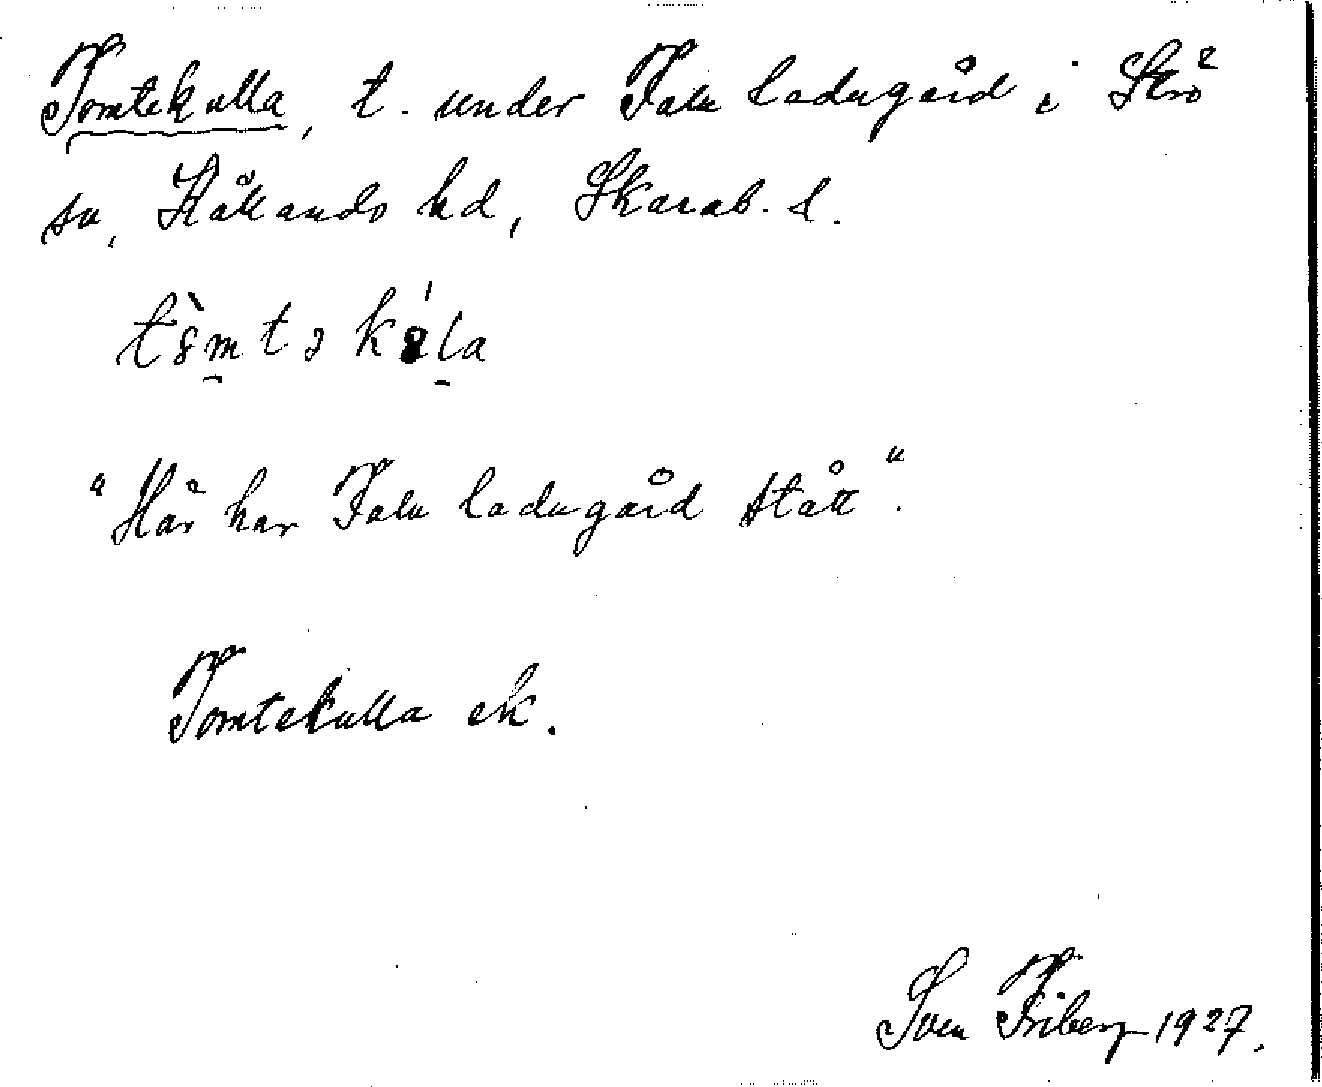 Tomtekulla, t. under Falu ladugård i Skro²
sn, Kållands hd, Skarab. l.
tò̀mtəkúla
"Här har Falu ladugård stått".
Tomtekulla ek.
Sven Friberg 1927.